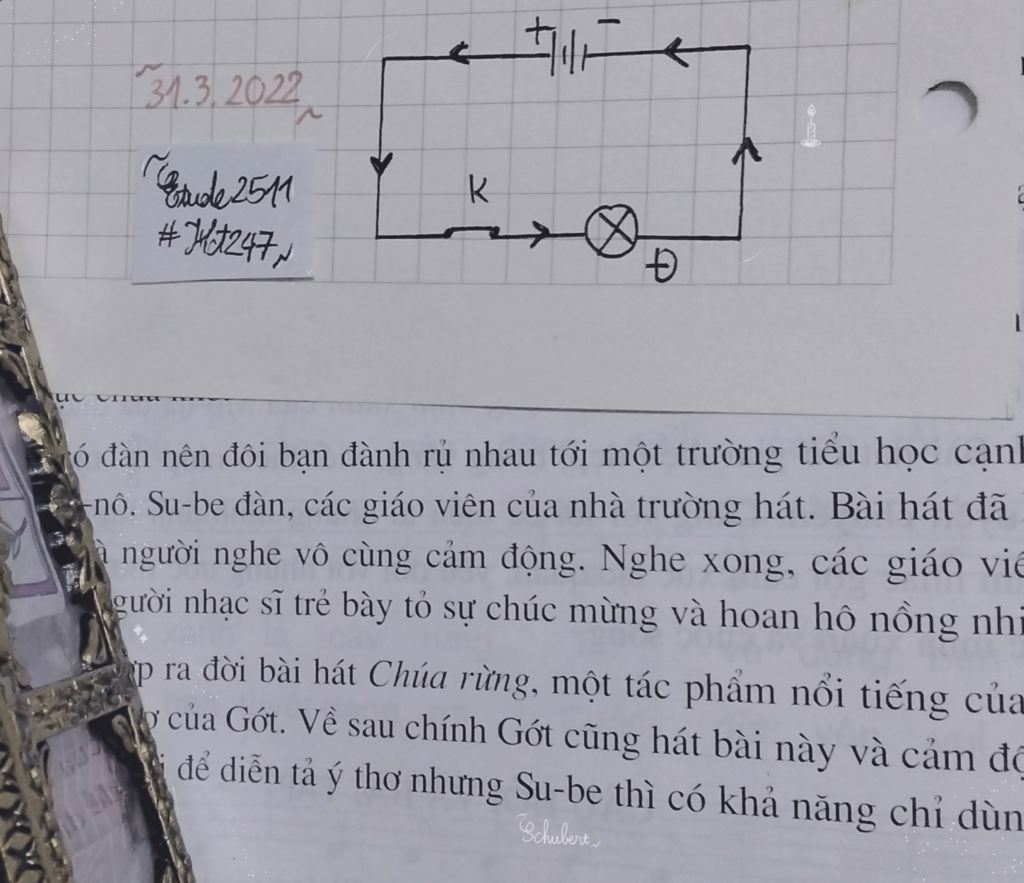 + -
31.3.2022
K
~Etude2511
#Hot247~
Đ
có đàn nên đôi bạn đành rủ nhau tới một trường tiểu học cạnh
-nô. Su-be đàn, các giáo viên của nhà trường hát. Bài hát đã
người nghe vô cùng cảm động. Nghe xong, các giáo viê
gười nhạc sĩ trẻ bày tỏ sự chúc mừng và hoan hô nồng nhi
ra đời bài hát Chúa rừng, một tác phẩm nổi tiếng của
của Gớt. Về sau chính Gớt cũng hát bài này và cảm độ
để diễn tả ý thơ nhưng Su-be thì có khả năng chỉ dùn
Schubert